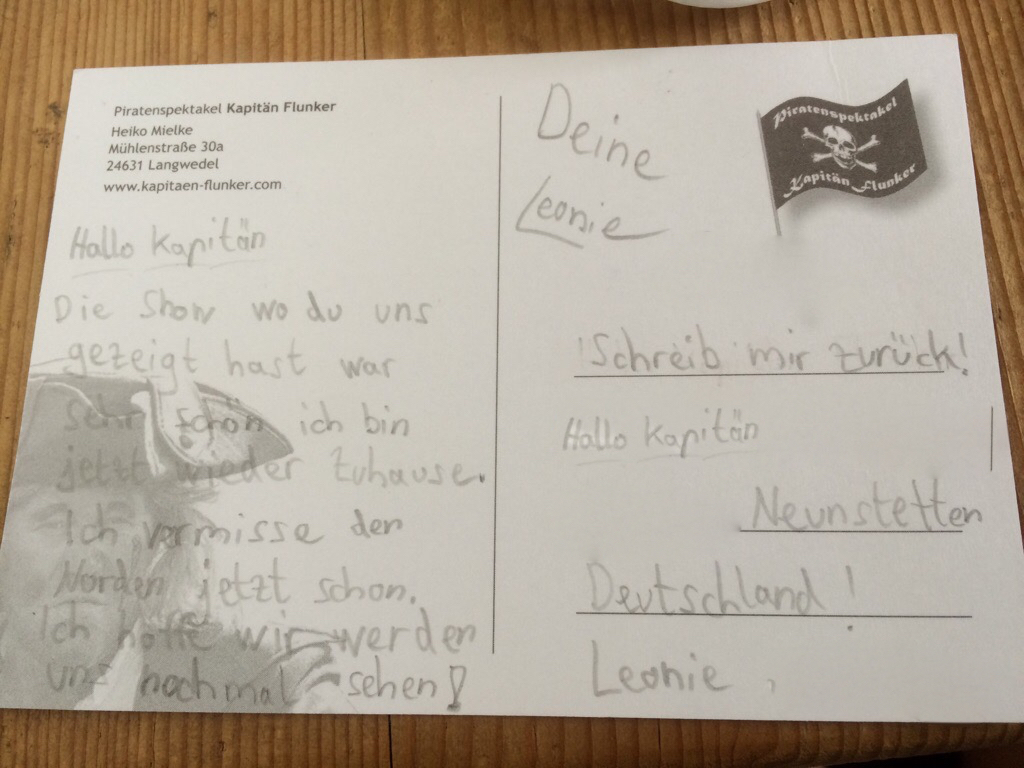 Piratenspektakel Kapitän Flunker
Heiko Mielke
Mühlenstraße 30a
24631 Langwedel
www.kapitaen-flunker.com
Hallo Kapitän
Die Show wo du uns
gezeigt hast war
sehr schön ich bin
jetzt wieder zuhause.
Ich vermisse den
Norden jetzt schon.
Ich hoffe wir werden
uns nochmal sehen!
Deine
Leonie
Piratenspektakel
Kapitän Flunker
!Schreib mir zurück!
Hallo Kapitän
Neunstetten
Deutschland!
Leonie